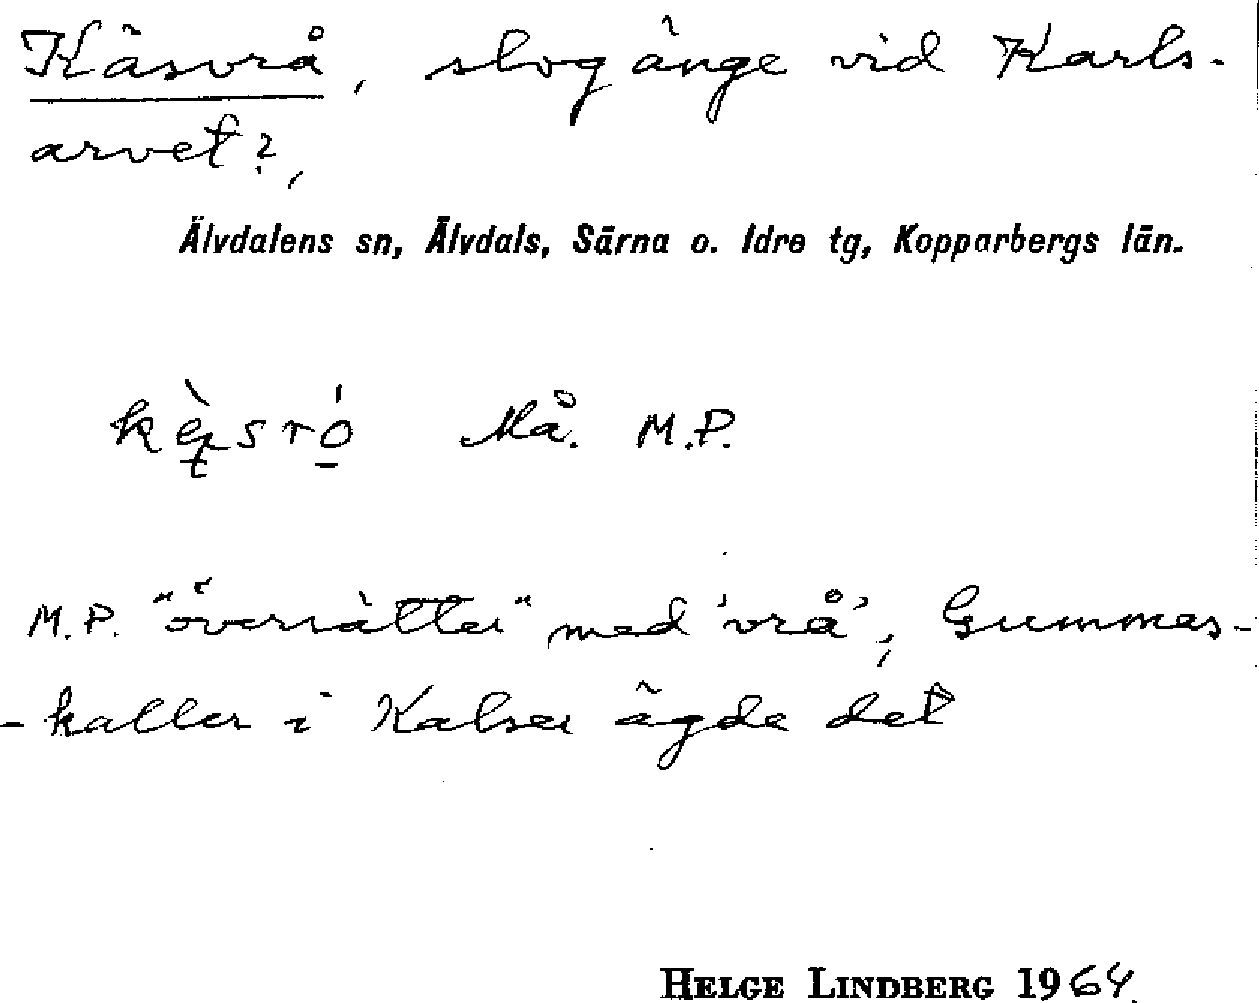 Käsvrå, slogänge vid Karls-
arvet?,
Älvdalens sn, Älvdals, Särna o. Idre tg, Kopparbergs län.
Må. M.P.
M.P. "översätter" med 'vrå', Gummas-
-kaller i Kalser ägde det
HELGE LINDBERG 1964